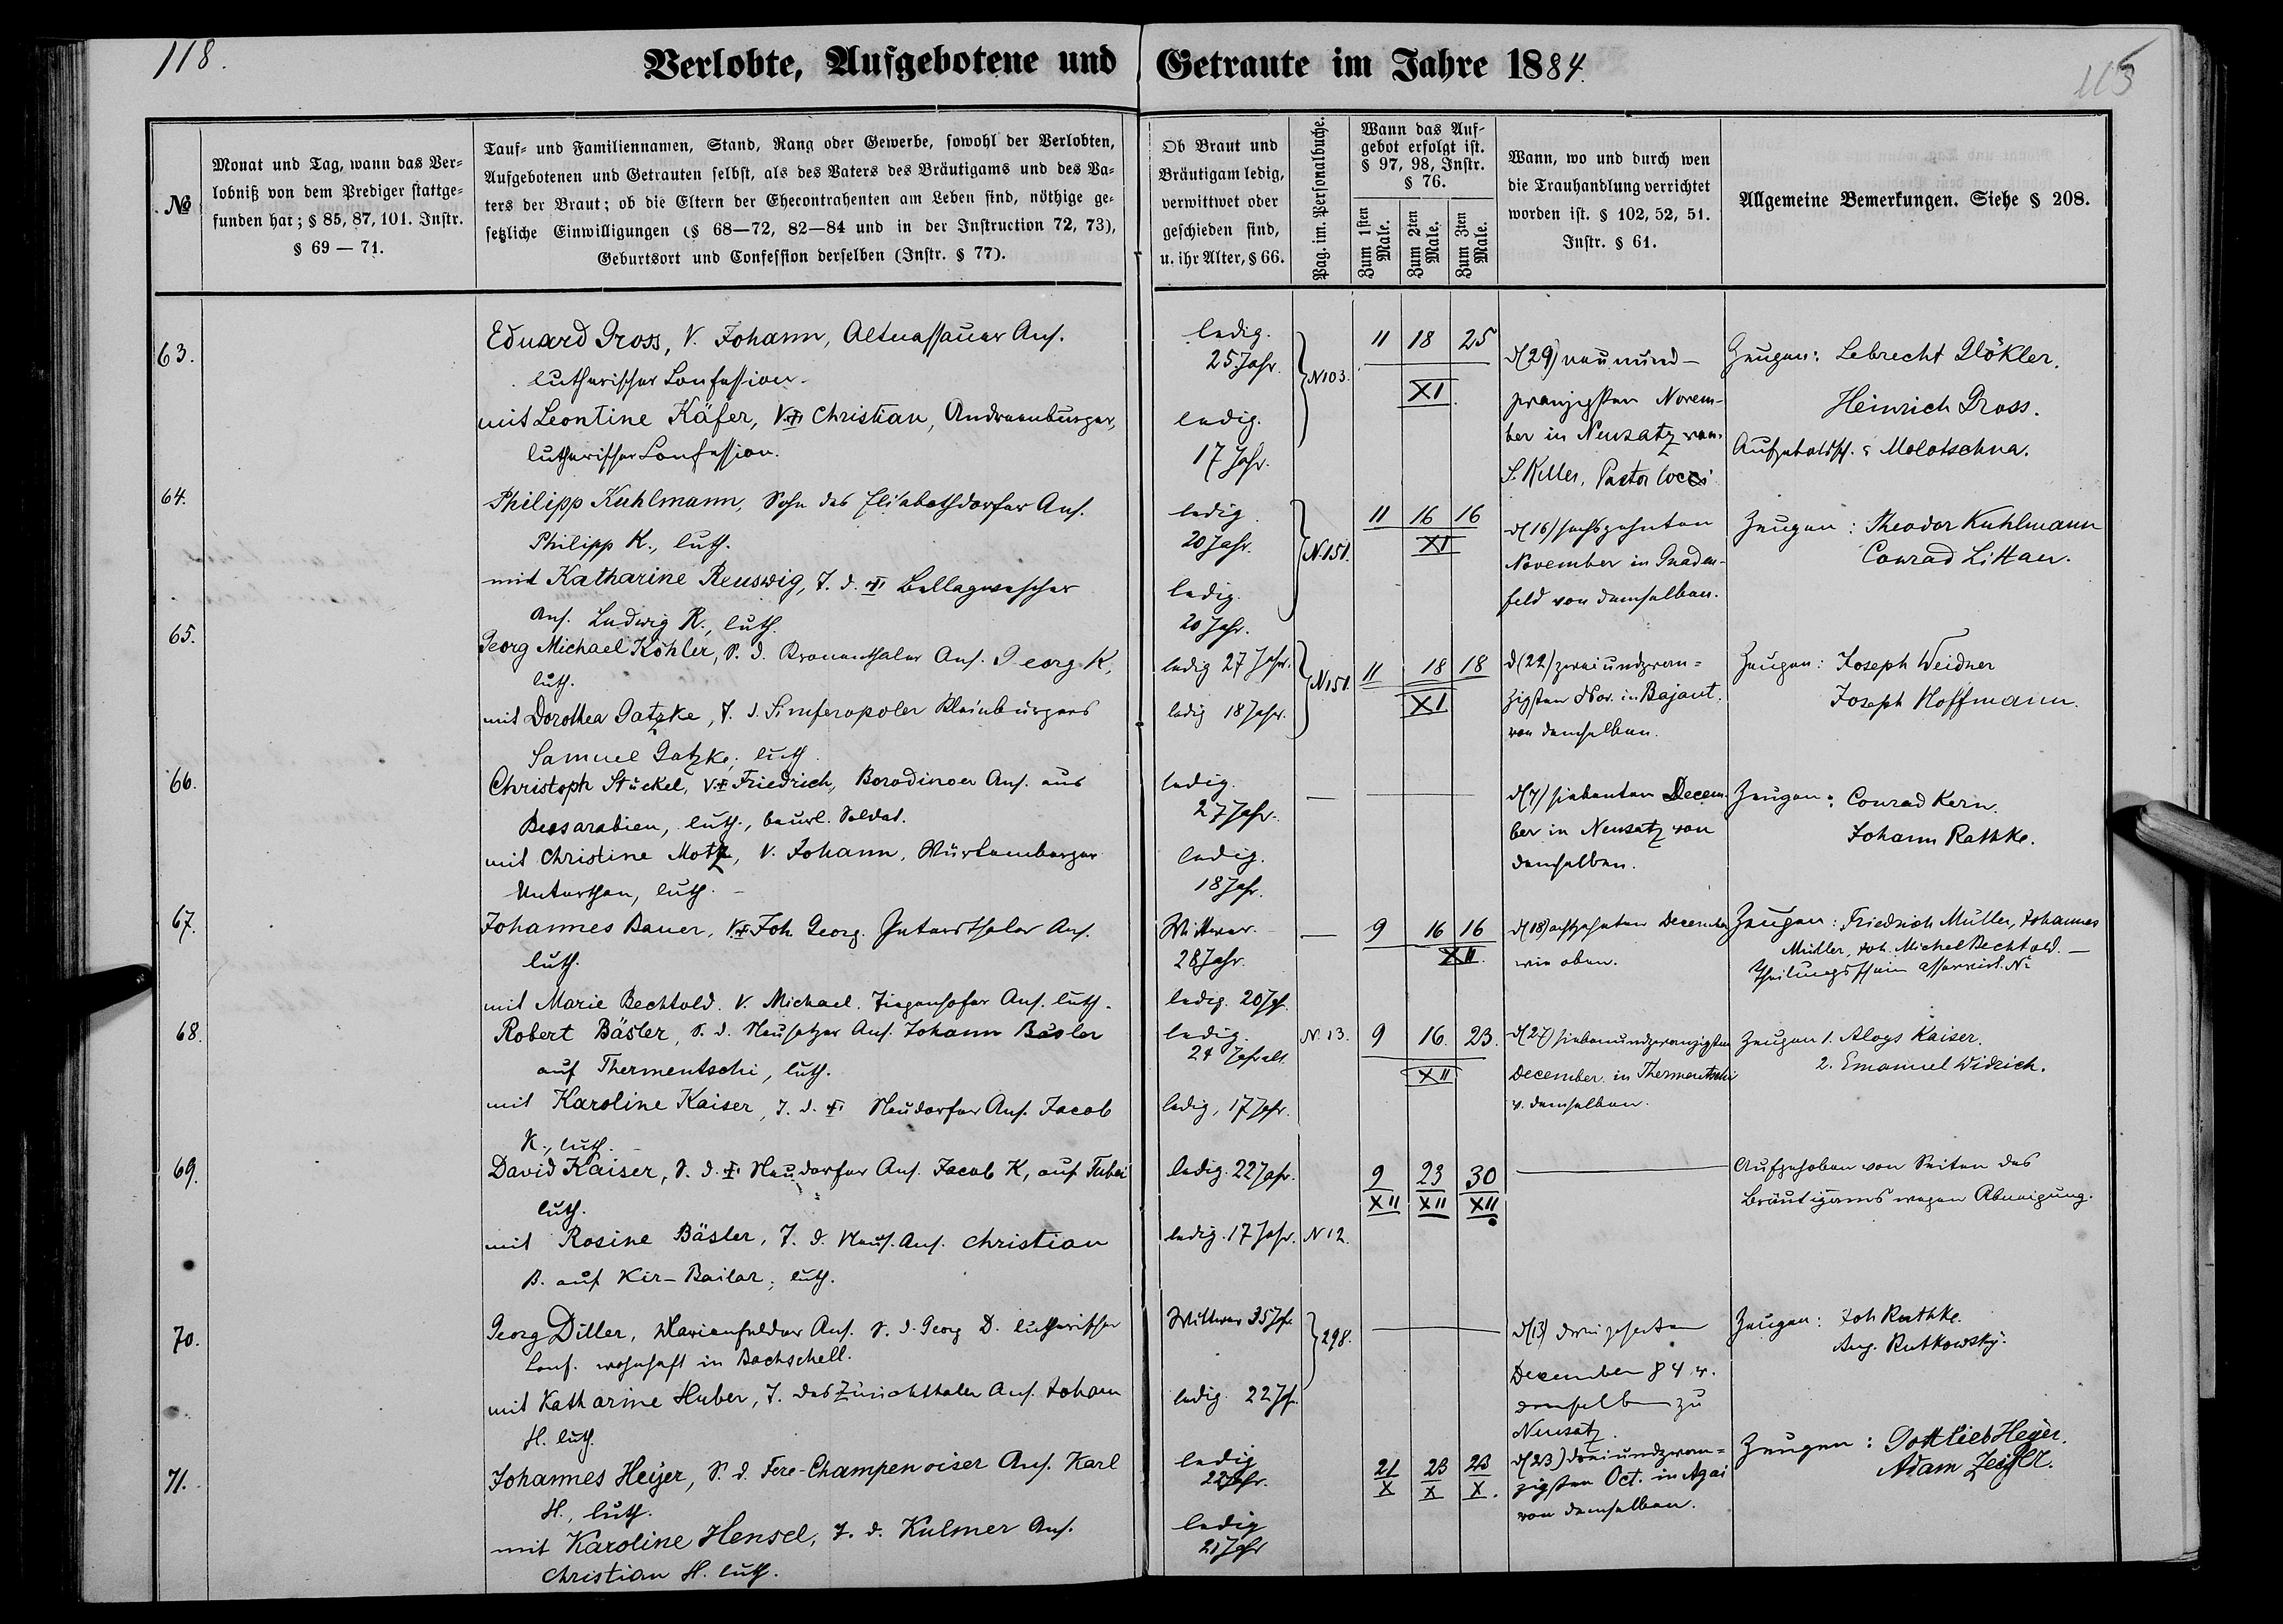 118.
115
Verlobte, Aufgebotene und Getraute im Jahre 1884.
№
Monat und Tag, wann das Ver-
lobniß von dem Prediger stattge-
funden hat; § 85, 87, 101. Instr.
§ 69 — 71.
Tauf- und Familiennamen, Stand, Rang oder Gewerbe, sowohl der Verlobten,
Aufgebotenen und Getrauten selbst, als des Vaters des Bräutigams und des Va-
ters der Braut; ob die Eltern der Ehecontrahenten am Leben sind, nöthige ge-
setzliche Einwilligungen (§ 68—72, 82—84 und in der Instruction 72, 73),
Geburtsort und Confession derselben (Instr. § 77).
Ob Braut und
Bräutigam ledig,
verwittwet oder
geschieden sind,
u. ihr Alter, § 66.
Pag. im. Personalbuche.
Wann das Auf-
gebot erfolgt ist.
§ 97, 98, Instr.
§ 76.
Zum 1sten
Male.
Zum 2ten
Male.
Zum 3ten
Male.
Wann, wo und durch wen
die Trauhandlung verrichtet
worden ist. § 102, 52, 51.
Instr. § 61.
Allgemeine Bemerkungen. Siehe § 208.
63.
Eduard Gross, V. Johann, Altnassauer Ans.
lutherischer Confession.
mit Leontine Käfer, V. † Christian, Andreenburger,
lutherischer Confession.
ledig.
25 Jahr.
ledig.
17 Jahr.
N 103.
11 18 25
XI.
d (29) neunund-
zwanzigsten Novem-
ber in Neusatz von
S. Keller, Pastor loci
Zeugen: Lebrecht Glökler.
Heinrich Gross.
Aufgebotssch.: Molotschna.
64.
Philipp Kuhlmann, Sohn des Elisabethdorfer Ans.
Philipp K., luth.
mit Katharine Reuswig, T. d. † Bellagwescher
Ans. Ludwig R., luth.
ledig.
20 Jahr.
ledig.
20 Jahr.
N. 151.
11 16 16
XI
d (16) sechszehnten
November in Gnaden-
feld von demselben.
Zeugen: Theodor Kuhlmann
Conrad Littau.
65.
Georg Michael Köhler, S. d. Kronenthaler Ans. Georg K,
luth.
mit Dorothea Gatzke, T. d. Simferopoler Kleinbürgers
Samuel Gatzke; luth.
ledig 27 Jahr.
ledig 18 Jahr.
N 151.
11 18 18
XI
d (22) zweiundzwan=
zigsten Nov. in Bajaut.
von demselben.
Zeugen: Joseph Weidner
Joseph Hoffmann.
66.
Christoph Stückel, V. † Friedrich, Borodinoer Ans. aus
Bessarabien, luth., beurl. Soldat.
mit Christine Motz, V. Johann, Würtemberger
Unterthan, luth. –
ledig.
27 Jahr.
ledig.
18 Jahr.
—
d (7) siebenten Decem-
ber in Neusatz von
demselben.
Zeugen: Conrad Kern.
Johann Rathke.
67.
Johannes Bauer, V. † Joh. Georg.
Ans.
luth.
mit Marie Bechtold. V. Michael.
Ans. luth.
Wittwer.
28 Jahr.
ledig. 20 Jahr.
—
9 16 16
XII.
d (18) achtzehnten December
wie oben.
Zeugen: Friedrich Müller, Johannes
Müller, Joh. Michel Bechtold. —
Theilungsschein asservirt. №
68.
Robert Bäsler, S. d. Neusatzer Ans. Johann Bäsler
auf Thermentschi, luth.
mit Karoline Kaiser, T. d. † Neudorfer Ans. Jacob
K., luth.
ledig.
24 Jahr alt
ledig, 17 Jahr.
N. 13.
9 16. 23.
XII
d (27) siebenundzwanzigsten
December. in Thermentschi
v. demselben.
Zeugen 1. Aloys Kaiser.
2. Emanuel Widrich.
69.
David Kaiser, S. d. † Neudorfer Ans. Jacob K, auf Tubai
luth.
mit Rosine Bäsler, T. d. Neus. Ans. Christian
B. auf Kir-Bailar; luth.
ledig. 22 Jahr.
ledig. 17 Jahr.
N 12.
9 23 30
XII XII XII
Aufgehoben von Seiten des
Bräutigams wegen Abneigung.
70.
Georg Diller, Marienfelder Ans. S. d. Georg D. lutherischer
Conf. wohnhaft in Bachschell.
mit Katharine Huber, T. des Zürichthaler Ans. Johann
H. luth.
Wittwer 35 Jhr.
ledig. 22 Jhr.
298.
d (13) dreizehnten
December 84 v.
demselben zu
Neusatz.
Zeugen: Joh Rathke.
Aug. Rutkowsky.
71.
Johannes Heyer, S. d. Fere-Champenoiser Ans. Karl
H., luth.
mit Karoline Hensel, T. d. Kulmer Ans.
Christian H. luth.
ledig
22 Jahr.
ledig
21 Jahr
21 23 23
X X X.
d (23) dreiundzwan=
zigsten Oct. in Agai
von demselben.
Zeugen: Gottlieb Heyer.
Adam Zeissler.